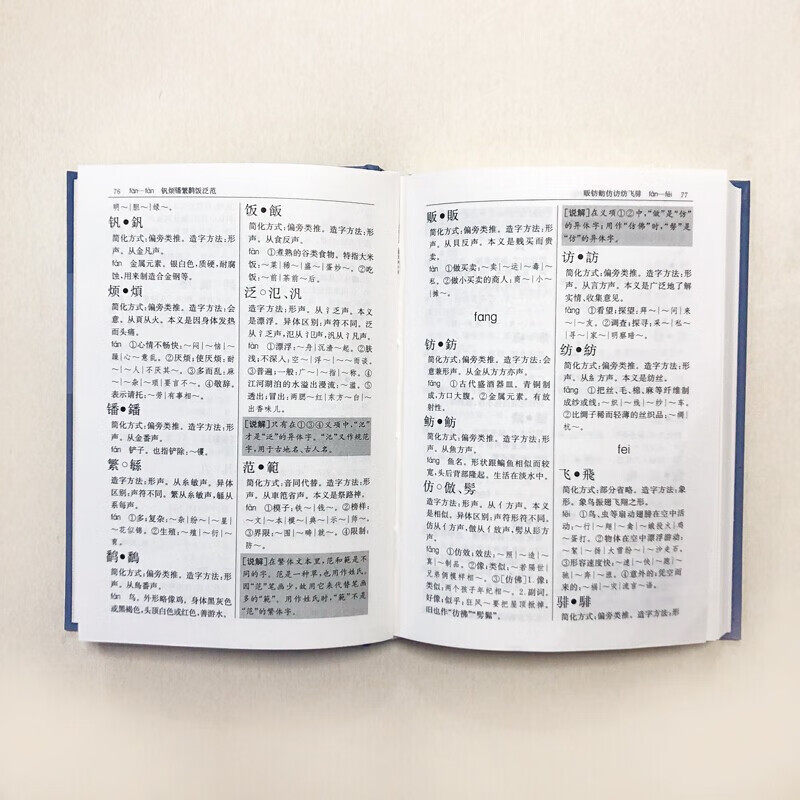 76 fán—fàn 钒烦璠繁鹬饭泛范
明～│胆～│嫌～。
钒●釩
简化方式:偏旁类推。造字方法:形
声。从金凡声。
fán 金属元素。银白色,质硬,耐腐
蚀,用来制造合金钢等。
烦●煩
简化方式:偏旁类推。造字方法:会
意。从頁从火。本义是因身体发热
而头痛。
fán ①心情不畅快:～闷│～恼│～
躁│心～意乱。②厌烦;使厌烦:耐
～│～人│不厌其～。③多而乱:麻
～│～杂│～琐│要言不～。④敬辞。
表示请托:～劳│有事相～。
简化方式:偏旁类推。造字方法:形
声。从金番声。
fán 铲子。也指铲除:～镢。
繁○緐
造字方法:形声。从糸敏声。异体
区别:声符不同。繁从糸敏声,緐从
系每声。
fán ①多;复杂:～杂│纷～│～星│
～花似锦。②生殖:～殖│～衍│～
育。
简化方式:偏旁类推。造字方法:形
fán 鸟。外形略像鸡,身体黑灰色
或黑褐色,头顶白色或红色,善游水、
饭●飯
简化方式:偏旁类推。造字方法:形
声。从食反声。
fàn ①煮熟的谷类食物。特指大米
饭:～菜│稀～│盛～│蛋炒～。②吃
饭:～前│茶前～后。
泛○氾、汎
造字方法:形声。从氵乏声。本义
是漂浮。异体区别:声符不同。泛
从氵乏声,氾从氵㔾声,汎从氵凡声。
fàn ①漂浮:～舟│沉渣～起。②肤
浅;不深入:空～│浮～│～～而谈。
③普遍;一般:广～│～指│～称。④
江河湖泊的水溢出漫流:～滥。⑤
透出;冒出:两腮～红│东方～白│～
出香味儿。
[说解]只有在①③④义项中,“氾”
才是“泛”的异体字。“氾”又作规范
字,用于古地名、古人名。
范●範
简化方式:音同代替。造字方法:形
声。从車笵省声。本义是祭路神。
fàn ①模子:铁～│钱～。②榜样:
～文│～本│模～│典～│示～│师～。
③界限:～围│～畴│就～。④限制:
防～。
[说解]在繁体文本里,范和範是不
同的字。范是一种草,也用作姓氏。
因“范”笔画少,故用它来代替笔画
多的“範”。用作姓氏时,“範”不是
“范”的繁体字。
贩钫鲂仿访纺飞 fàn—fēi 77
贩●販
简化方式:偏旁类推。造字方法:形
声。从貝反声。本义是贱买而贵
卖。
fàn ①做买卖:～卖│～运│～毒│～
私。②做小买卖的商人:商～│小～
│摊～。
fang
钫●鈁
简化方式:偏旁类推。造字方法:会
意兼形声。从金从方方亦声。
fāng ①古代盛酒器皿。青铜制
成,方口大腹。②金属元素。有放
射性。
鲂●魴
简化方式:偏旁类推。造字方法:形
声。从魚方声。
fáng 鱼名。形状跟鳊鱼相似而较
宽,头后背部隆起。生活在淡水中。
仿○倣、髣
造字方法:形声。从亻方声。本义
是相似。异体区别:声符形符不同。
仿从亻方声,倣从亻放声,髣从髟方
声。
fǎng ①仿效;效法:～照│～造│～
真│～制品。②像;类似:～若隔世│
兄弟俩模样相～。③[仿佛]1.像;
类似:两个孩子年纪相～。2.副词。
好像;似乎:狂风～要把屋顶掀掉。
旧也作“彷彿”“髣髴”。
[说解]在义项①②中,“倣”是“仿”
的异体字;用作“仿佛”时,“髣”是
“仿”的异体字。
访●訪
简化方式:偏旁类推。造字方法:形
声。从言方声。本义是广泛地了解
实情、收集意见。
fǎng ①看望;探望:拜～│～问│来
～│～友。②调查;探寻:采～│私～│
～寻│～求│明察暗～。
纺●紡
简化方式:偏旁类推。造字方法:形
声。从糸方声。本义是纺丝。
fǎng ①把丝、毛、棉、麻等纤维制
成纱或线:～织│～线│～纱│～车。
②比绸子稀而轻薄的丝织品:～绸│
杭～。
fei
飞●飛
简化方式:部分省略。造字方法:象
形。象鸟振翅飞翔之形。
fēi ①鸟、虫等扇动翅膀在空中活
动:～行│～翔│～禽│～蛾投火│鸡
～蛋打。②物体在空中漂浮游动:
～絮│～扬│大雪纷～│～沙走石。
③形容速度快:～速│～快│～跑│～
驰│～奔│～涨。④意外的;凭空而
来的:～祸│～灾│流言～语。
简化方式:偏旁类推。造字方法:形